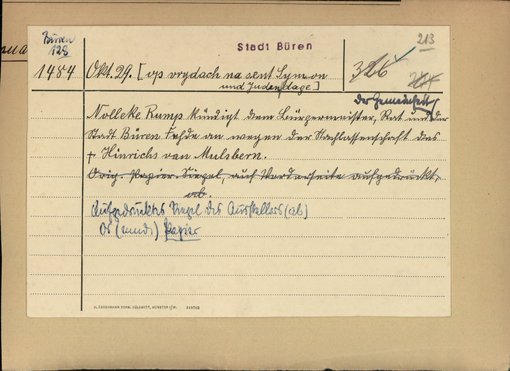 Büren
128
Stadt Büren
213
1484
Okt. 29. [up vrydach na sent Symon
und Juden dage]
326
der Gemeinheit
Nolleke Rump kündigt dem Bürgermeister, Rat und der
Stadt Büren Fehde an wegen der Nachlassenschaft des
† Hinrichs van Mulsbern.
Orig. Papier. Siegel, auf Vorderseite aufgedrückt,
ab.
Aufgedrucktes Siegel des Ausstellers (ab)
Or (mnd.) Papier